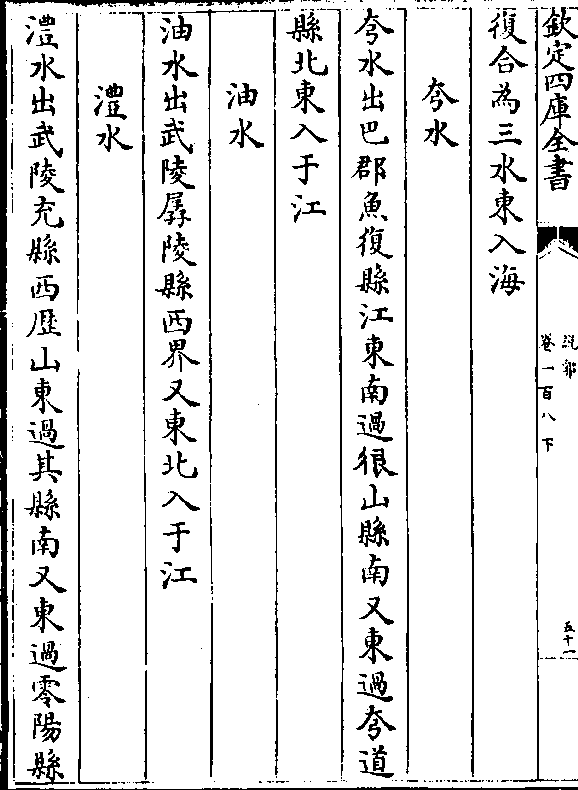 欽定四庫全書
説郛
卷一百八下
五十一
復合為三水東入海
夸水
夸水出巴郡魚復縣江東南過很山縣南又東過夸道
縣北東入于江
油水
油水出武陵孱陵縣西界又東北入于江
澧水
澧水出武陵充縣西歴山東過其縣南又東過零陽縣